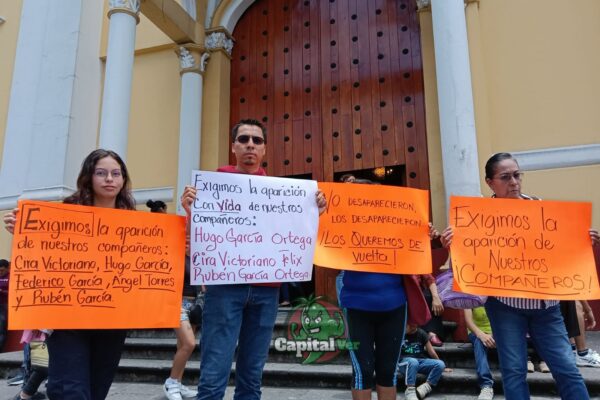 Exigimos la aparición
de nuestros compañeros:
Cira Victoriano, Hugo García,
Federico García, Ángel Torres
y Rubén García.
Exigimos la aparición
con Vida de nuestros
Compañeros:
Hugo García Ortega
Cira Victoriano Felix
Rubén García Ortega
NO DESAPARECIERON,
LOS DESAPARECIERON
¡Los Queremos de
vuelta!
Exigimos la
aparición de
Nuestros
¡COMPAÑEROS!
Capital Ver